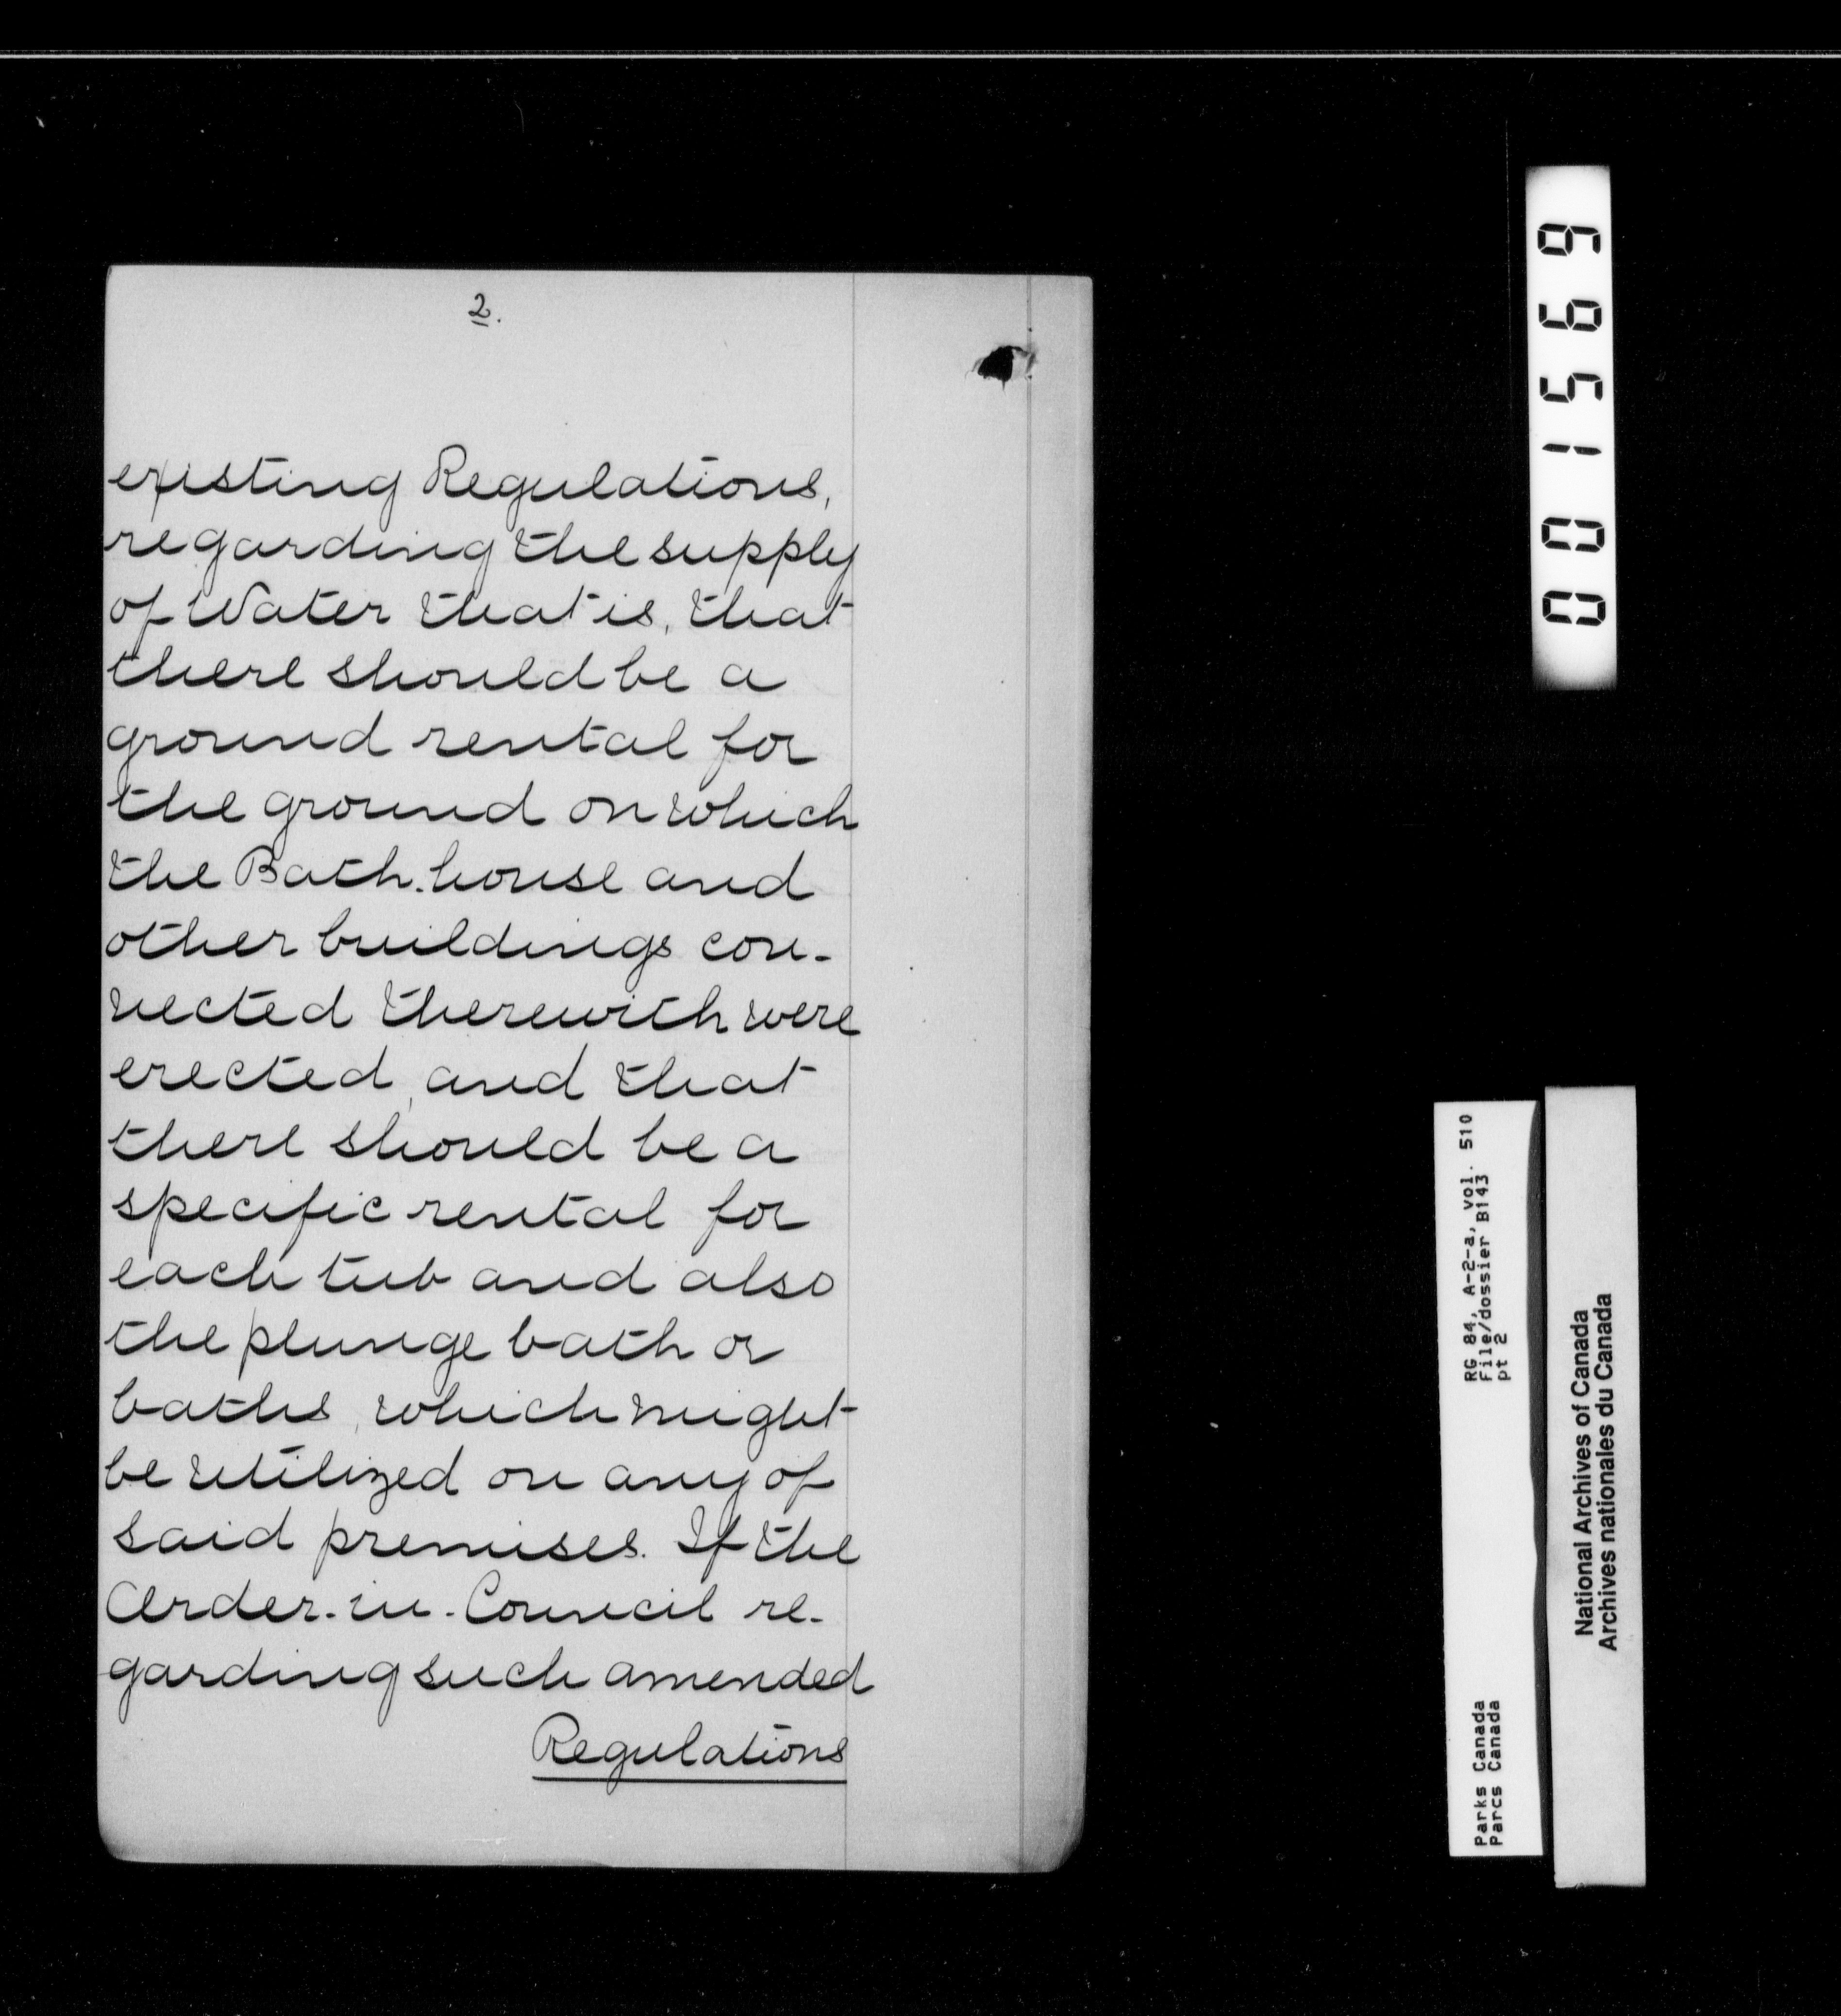 2.
existing Regulations,
regarding the supply
of Water that is, that
there should be a
ground rental for
the ground on which
the Bath-house and
other buildings con-
nected therewith were
erected, and that
there should be a
specific rental for
each tub and also
the plunge bath or
baths, which might
be utilized on any of
said premises. If the
Order-in-Council re-
garding such amended
Regulations
001569
RG 84, A-2-a, vol. 510
File/dossier B143
pt 2
Parks Canada
Parcs Canada
National Archives of Canada
Archives nationales du Canada